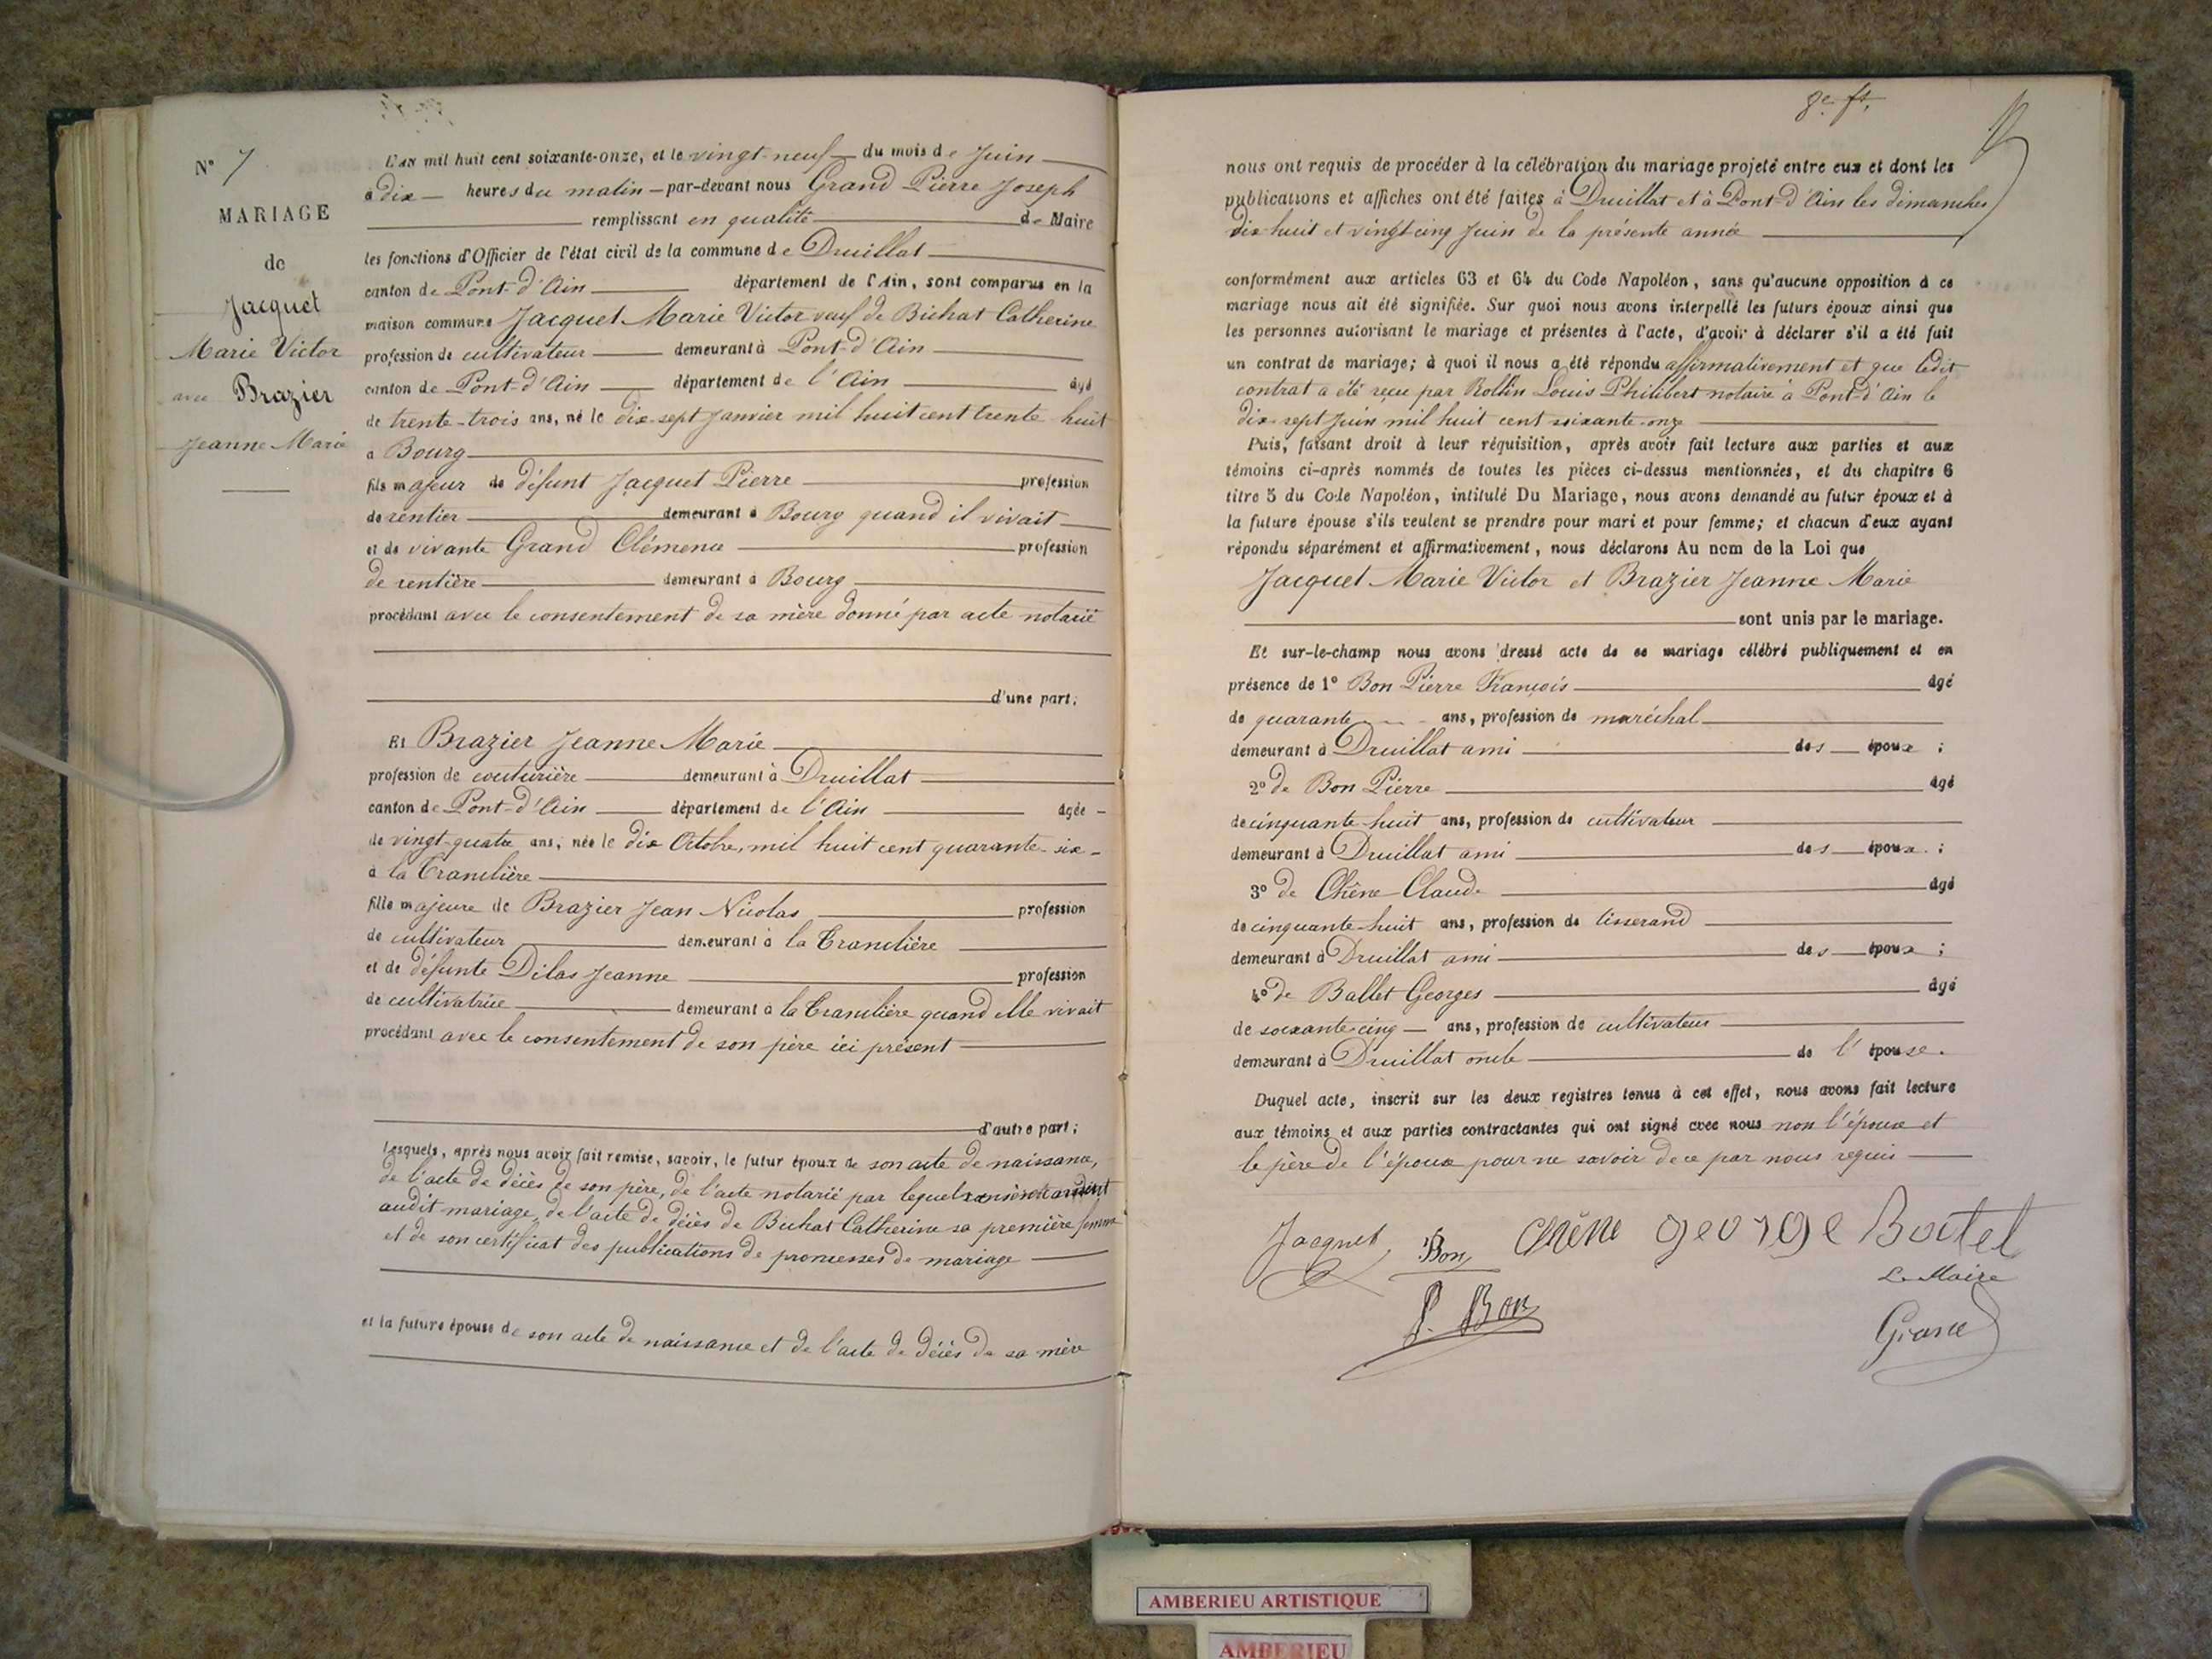 N° 7
MARIAGE
de
Jacquet
Marie Victor
avec Brazier
Jeanne Marie
L'an mil huit cent soixante-onze, et le vingt-neuf du mois de Juin
à dix heures du matin par-devant nous Grand Pierre Joseph
remplissant en qualité de Maire
les fonctions d'Officier de l'état civil de la commune de Druillat
canton de Pont-d'Ain département de l'Ain, sont comparus en la
maison commune Jacquet Marie Victor veuf de Bichat Catherine
profession de cultivateur demeurant à Pont-d'Ain
canton de Pont-d'Ain département de l'Ain âgé
de trente-trois ans, né le dix-sept Janvier mil huit cent trente huit
à Bourg
fils majeur de défunt Jacquet Pierre profession
de rentier demeurant à Bourg quand il vivait
et de vivante Grand Clémence profession
de rentière demeurant à Bourg
procédant avec le consentement de sa mère donné par acte notarié
d'une part;
Et Brazier Jeanne Marie
profession de couturière demeurant à Druillat
canton de Pont-d'Ain département de l'Ain âgée
de vingt-quatre ans, née le dix Octobre, mil huit cent quarante-six
à la Tranclière
fille majeure de Brazier Jean Nicolas profession
de cultivateur demeurant à la Tranclière
et de défunte Dilas Jeanne profession
de cultivatrice demeurant à la Tranclière quand elle vivait
procédant avec le consentement de son père ici présent
d'autre part;
Lesquels, après nous avoir fait remise, savoir, le futur époux de son acte de naissance,
de l'acte de décès de son père, de l'acte notarié par lequel
audit mariage, de l'acte de décès de Bichat Catherine sa première femme
et de son certificat des publications de promesses de mariage
et la future épouse de son acte de naissance et de l'acte de décès de sa mère
8e ft.
nous ont requis de procéder à la célébration du mariage projeté entre eux et dont les
publications et affiches ont été faites à Druillat et à Pont-d'Ain les dimanches
dix-huit et vingt cinq Juin de la présente année
conformément aux articles 63 et 64 du Code Napoléon, sans qu'aucune opposition à ce
mariage nous ait été signifiée. Sur quoi nous avons interpellé les futurs époux ainsi que
les personnes autorisant le mariage et présentes à l'acte, d'avoir à déclarer s'il a été fait
un contrat de mariage; à quoi il nous a été répondu affirmativement et que ledit
contrat a été reçu par Rollin Louis Philibert notaire à Pont-d'Ain le
dix-sept Juin mil huit cent soixante-onze
Puis, faisant droit à leur réquisition, après avoir fait lecture aux parties et aux
témoins ci-après nommés de toutes les pièces ci-dessus mentionnées, et du chapitre 6
titre 5 du Code Napoléon, intitulé Du Mariage, nous avons demandé au futur époux et à
la future épouse s'ils veulent se prendre pour mari et pour femme; et chacun d'eux ayant
répondu séparément et affirmativement, nous déclarons Au nom de la Loi que
Jacquet Marie Victor et Brazier Jeanne Marie
sont unis par le mariage.
Et sur-le-champ nous avons dressé acte de ce mariage célébré publiquement et en
présence de 1° Bon Pierre François âgé
de quarante ans, profession de maréchal
demeurant à Druillat ami des époux;
2° de Bon Pierre âgé
de cinquante-huit ans, profession de cultivateur
demeurant à Druillat ami des époux;
3° de Chêne Claude âgé
de cinquante-huit ans, profession de tisserand
demeurant à Druillat ami des époux;
4° de Ballet Georges âgé
de soixante-cinq ans, profession de cultivateur
demeurant à Druillat oncle de l'épouse.
Duquel acte, inscrit sur les deux registres tenus à cet effet, nous avons fait lecture
aux témoins et aux parties contractantes qui ont signé avec nous non l'épouse et
le père de l'épouse pour ne savoir de ce par nous requis
Jacquet Bon Chêne george Batel
Le Maire
P. Bon Grand
AMBERIEU ARTISTIQUE
AMBERIEU